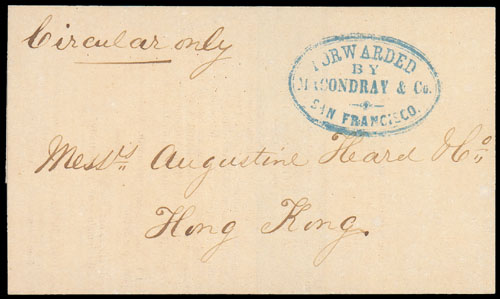 Circular only
FORWARDED
BY
MACONDRAY & Co.
SAN FRANCISCO.
Messrs Augustine Heard & Co.
Hong Kong.